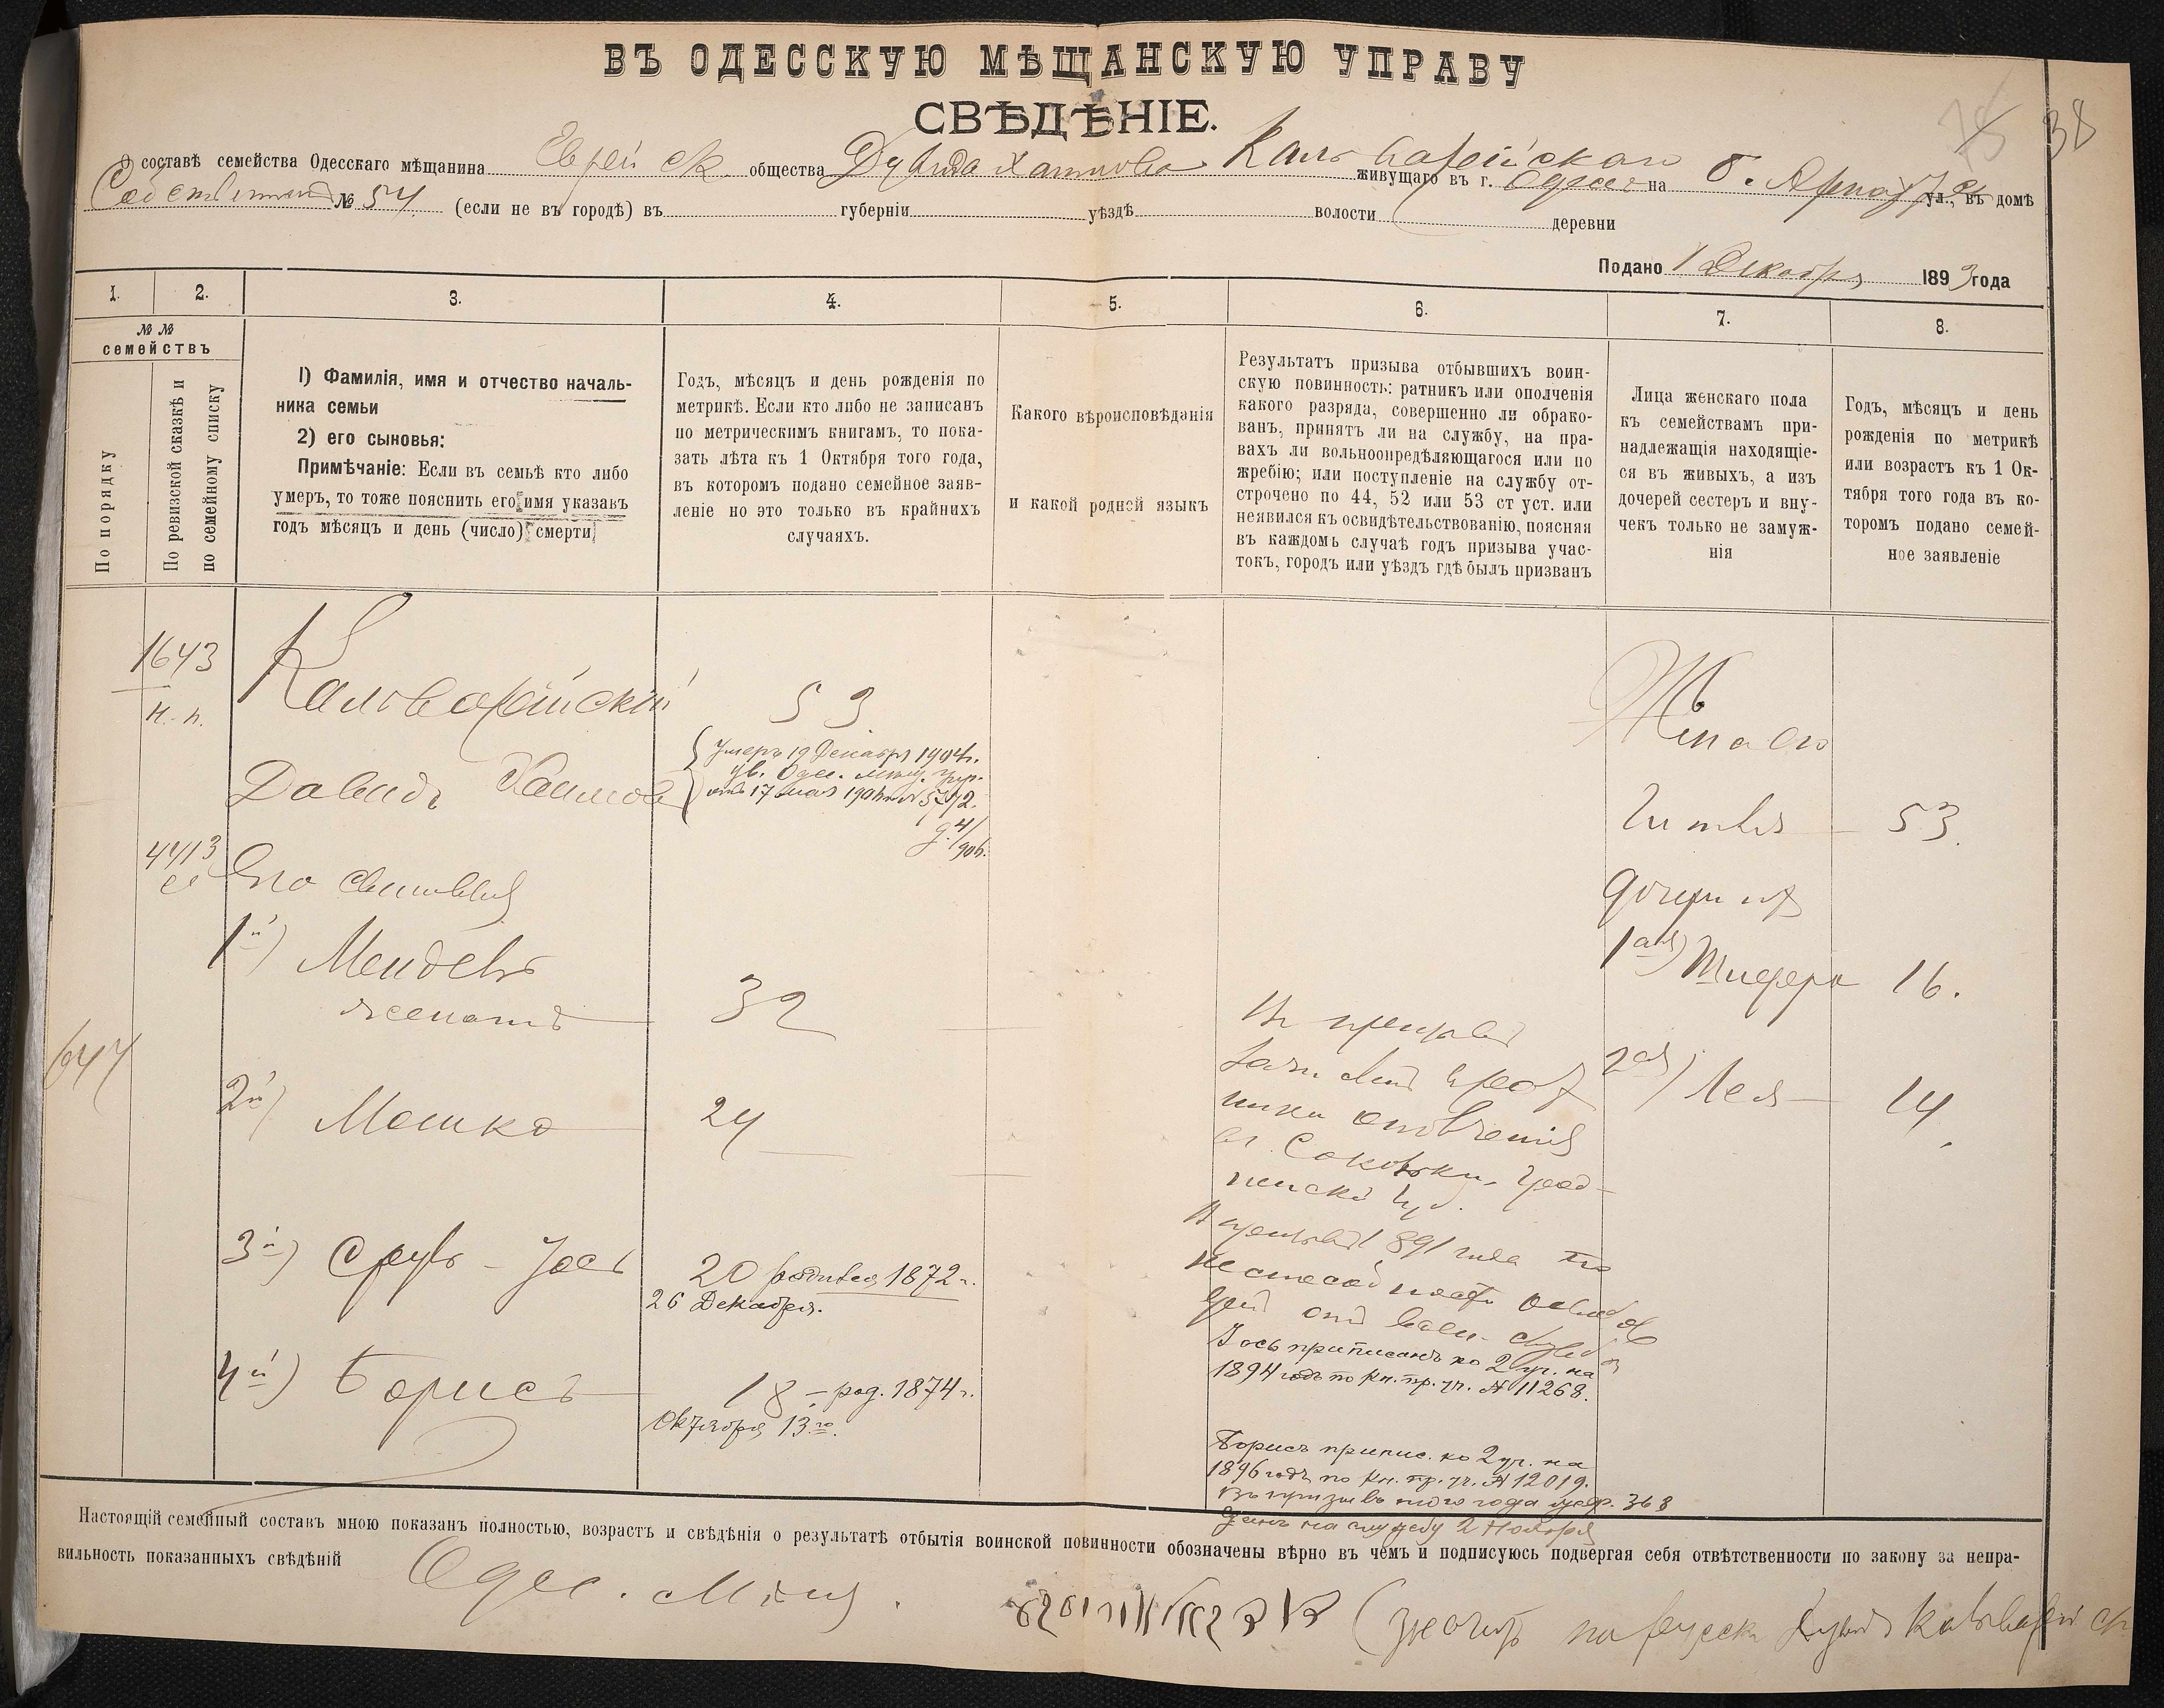 ВЪ ОДЕССКУЮ МѢЩАНСКУЮ УПРАВУ
СВѢДѢНІЕ.
38
о составѣ семейства Одесскаго мѣщанина Еврейск. общества Дувида Хаимова Кальварійскаго живущаго въ г. Одессе на Б. Арнаутск. ул., въ домѣ
Собственный № 54. (если не въ городѣ) въ губерніи уѣздѣ волости деревни
Подано 1 Декабря 1893 года
1. 2. 3. 4. 5. 6. 7. 8.
№ №
семействъ
По порядку
По ревизской сказкѣ и
по семейному списку
1) Фамилія, имя и отчество началь-
ника семьи
2) его сыновья:
Примѣчаніе: Если въ семьѣ кто либо
умеръ, то тоже пояснить его имя указавъ
годъ мѣсяцъ и день (число) смерти
Годъ, мѣсяцъ и день рожденія по
метрикѣ. Если кто либо не записанъ
по метрическимъ книгамъ, то пока-
зать лѣта къ 1 Октября того года,
въ которомъ подано семейное заяв-
леніе но это только въ крайнихъ
случаяхъ.
Какого вѣроисповѣданія
и какой родной языкъ
Результатъ призыва отбывшихъ воин-
скую повинность: ратникъ или ополченія
какого разряда, совершенно ли обрако-
ванъ, принятъ ли на службу, на пра-
вахъ ли вольноопредѣляющагося или по
жребію; или поступленіе на службу от-
строчено по 44, 52 или 53 ст уст. или
неявился къ освидѣтельствованію, поясняя
въ каждомъ случаѣ годъ призыва учас-
токъ, городъ или уѣздъ гдѣ былъ призванъ
Лица женскаго пола
къ семействамъ при-
надлежащія находящіе-
ся въ живыхъ, а изъ
дочерей сестеръ и вну-
чекъ только не замуж-
нія
Годъ, мѣсяцъ и день
рожденія по метрикѣ
или возрастъ къ 1 Ок-
тября того года въ ко-
торомъ подано семей-
ное заявленіе
1643
н.-п.
Кальварійскій
53
Жена его
Давидъ Хаимовъ
Умеръ 19 Декабря 1904г.
ув. Одес. мѣщ. упр.
отъ 17 мая № 5772.
Гитля 53.
4413
Его сыновья
дочери ихъ
1й) Мендель
женатъ 32
1ая) Шифра 16.
647
2й) Мошко 24
2ая) Лея 14.
зачисленъ в рат
ники ополченія
въ Соколки, Грод-
ненской губ.
3й) Сруль-Іось 20 родился 1872 г.
26 Декабря.
В 1891 года по
неспособности освобож
денъ отъ воен. службы
Іось приписанъ ко 2 уч. на
1894 годъ по кн. пр. уч. № 11268.
4й) Борисъ 18 – род. 1874 г.
Октября 13го.
Борисъ припис. ко 2 уч. на
1896 годъ по кн. пр. уч. № 12019.
Въ призывъ того года жер. 363
на службу 2 Ноября
Настоящій семейный составъ мною показанъ полностью, возрастъ и свѣдѣнія о результатѣ отбытія воинской повинности обозначены вѣрно въ чемъ и подписуюсь подвергая себя отвѣтственности по закону за непра-
вильность показанныхъ свѣдѣній Одес. Мѣщ. (значитъ по русски Дувидъ Кальварійск